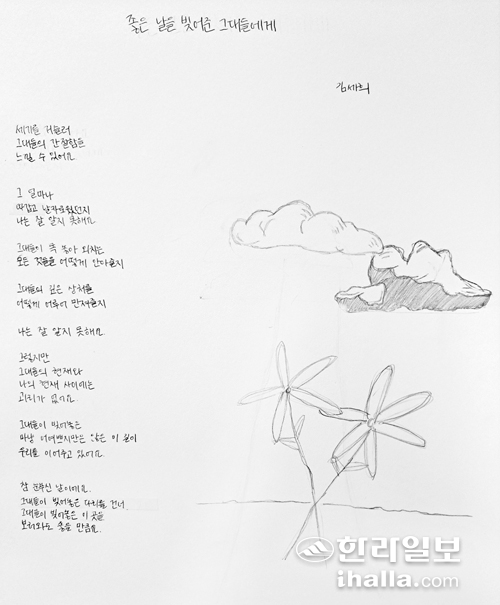 좋은 날들 빚어준 그대들에게
김세희
세기를 거슬러
그대들의 간절함을
느낄 수 있어요
그 얼마나
따갑고 날카로웠던지
나는 잘 알지 못해요
그대들이 목 놓아 외치는
모든 것들을 어떻게 안다 할지
그대들의 깊은 상처를
어떻게 어루어 만져줄지
나는 잘 알지 못해요
그렇지만
그대들의 현재와
나의 현재 사이에는
괴리가 없어요
그대들이 빚어놓은
마냥 어여쁘지만은 않은 이 섬이
우리를 이어주고 있어요
참 눈부신 날이에요
그대들이 빚어놓은 다리를 건너
그대들이 빚어놓은 이 곳을
보러와도 좋을 만큼요
한라일보
ihalla.com